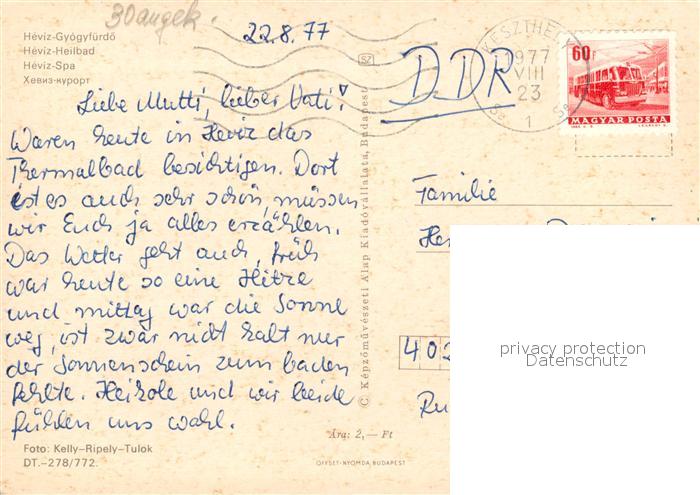 30 augek.
Hévíz-Gyógyfürdő
Hévíz-Heilbad
Hévíz-Spa
Хевиз-курорт
22.8.77
Liebe Mutti, lieber Vati!
Waren heute in Heviz das
Thermalbad besichtigen. Dort
ist es auch sehr schön, müssen
wir Euch ja alles erzählen.
Das Wetter geht auch, früh
war heute so eine Hitze
und mittag war die Sonne
weg, ist zwar nicht kalt nur
der Sonnenschein zum baden
fehlte. Heikole und wir beide
fühlen uns wohl.
Foto: Kelly–Ripely–Tulok
DT.–278/772.
SZ
© Képzőművészeti Alap Kiadóvállalata, Budapest
Ára: 2,— Ft
OFFSET-NYOMDA, BUDAPEST
DDR
KESZTHELY
1977
VIII
23
1
60f
MAGYAR POSTA
Familie
402
privacy protection
Datenschutz